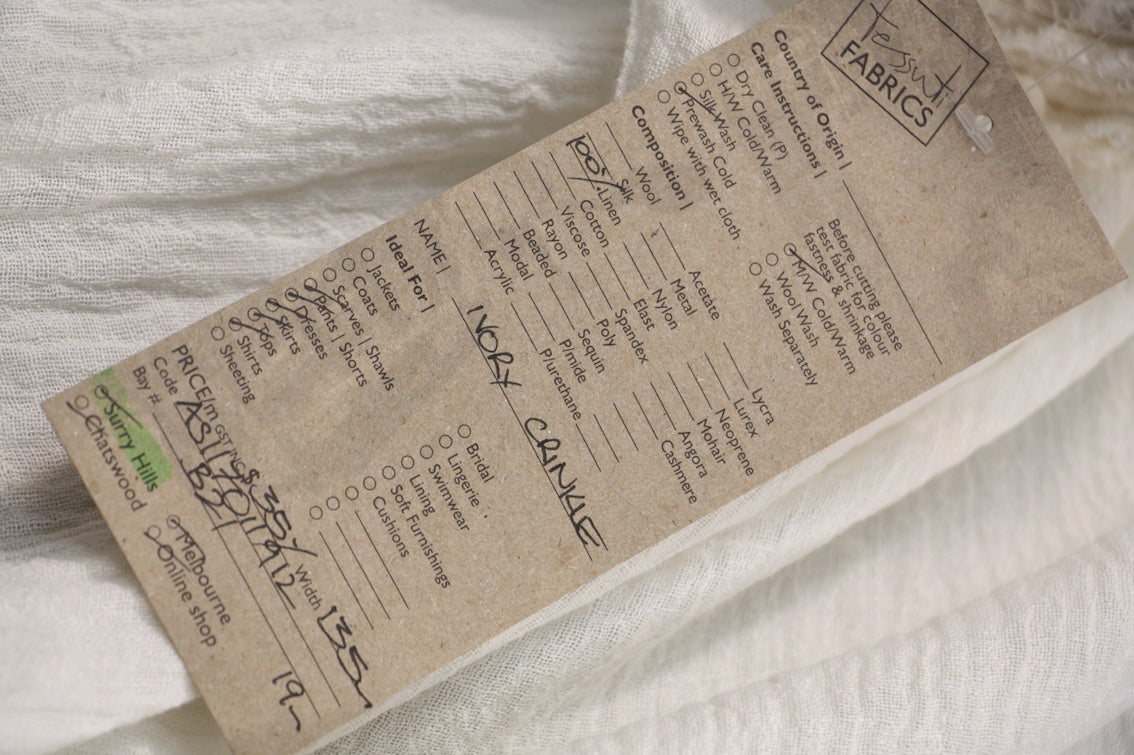 tessuti
FABRICS
Country of Origin |
Care Instructions |
Dry Clean (P)
H/W Cold/Warm
Silk Wash
Prewash Cold
Wipe with wet cloth
Before cutting please
test fabric for colour
fastness & shrinkage
M/W Cold/Warm
Wool Wash
Wash Separately
Composition |
Wool
Silk
100% Linen
Cotton
Viscose
Rayon
Beaded
Modal
Acrylic
Acetate
Metal
Nylon
Elast
Spandex
Poly
Sequin
P/mide
P/urethane
Lycra
Lurex
Neoprene
Mohair
Angora
Cashmere
NAME | IVORY CRINKLE
Ideal For |
Jackets
Coats
Scarves | Shawls
Pants | Shorts
Dresses
Skirts
Tops
Shirts
Sheeting
Bridal
Lingerie
Swimwear
Lining
Soft Furnishings
Cushions
PRICE/m GST INC $ 35/ Width 135
Code
Bay # B21
19m
Surry Hills
Chatswood
Melbourne
Online shop